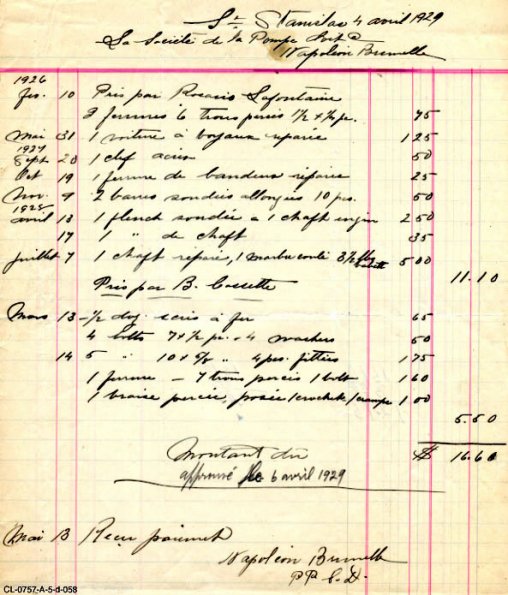 St Stanislas 4 avril 1929
La Société de la Pompe
Napoléon Brunelle
1926
10 Pris par Rosario Lafontaine
6 trous percés 75
Mai 31 1 voiture à boyaux réparée 1 25
1927
Sept 20 1 clef 50
Oct 19 1 de bandeus réparée 25
Nov. 9 2 barres soudées allongées 10 ps. 50
1928
avril 13 1 soudée a 1 chaft engin 2 50
17 1 " de chaft 35
juillet 7 1 chaft réparé, 1 3 1/2 5 00
11.10
Pris par B. Cossette
Mars 13 1/2 doz. à fer 65
4 bolts 7 x 1/2 4 washers 60
14 5 " 10 x 5/8 " 4 pcs. fitters 1 75
1 – 7 trous percés 1 bolt 1 60
1 braise percée, posée 1 crochet, 1 crampe 1 00
5.50
Montant du $ 16.60
approuvé 6 avril 1929
Mai 13 Reçu paiement
Napoléon Brunelle
P.P. C. D.
CL-0757-A-5-d-058